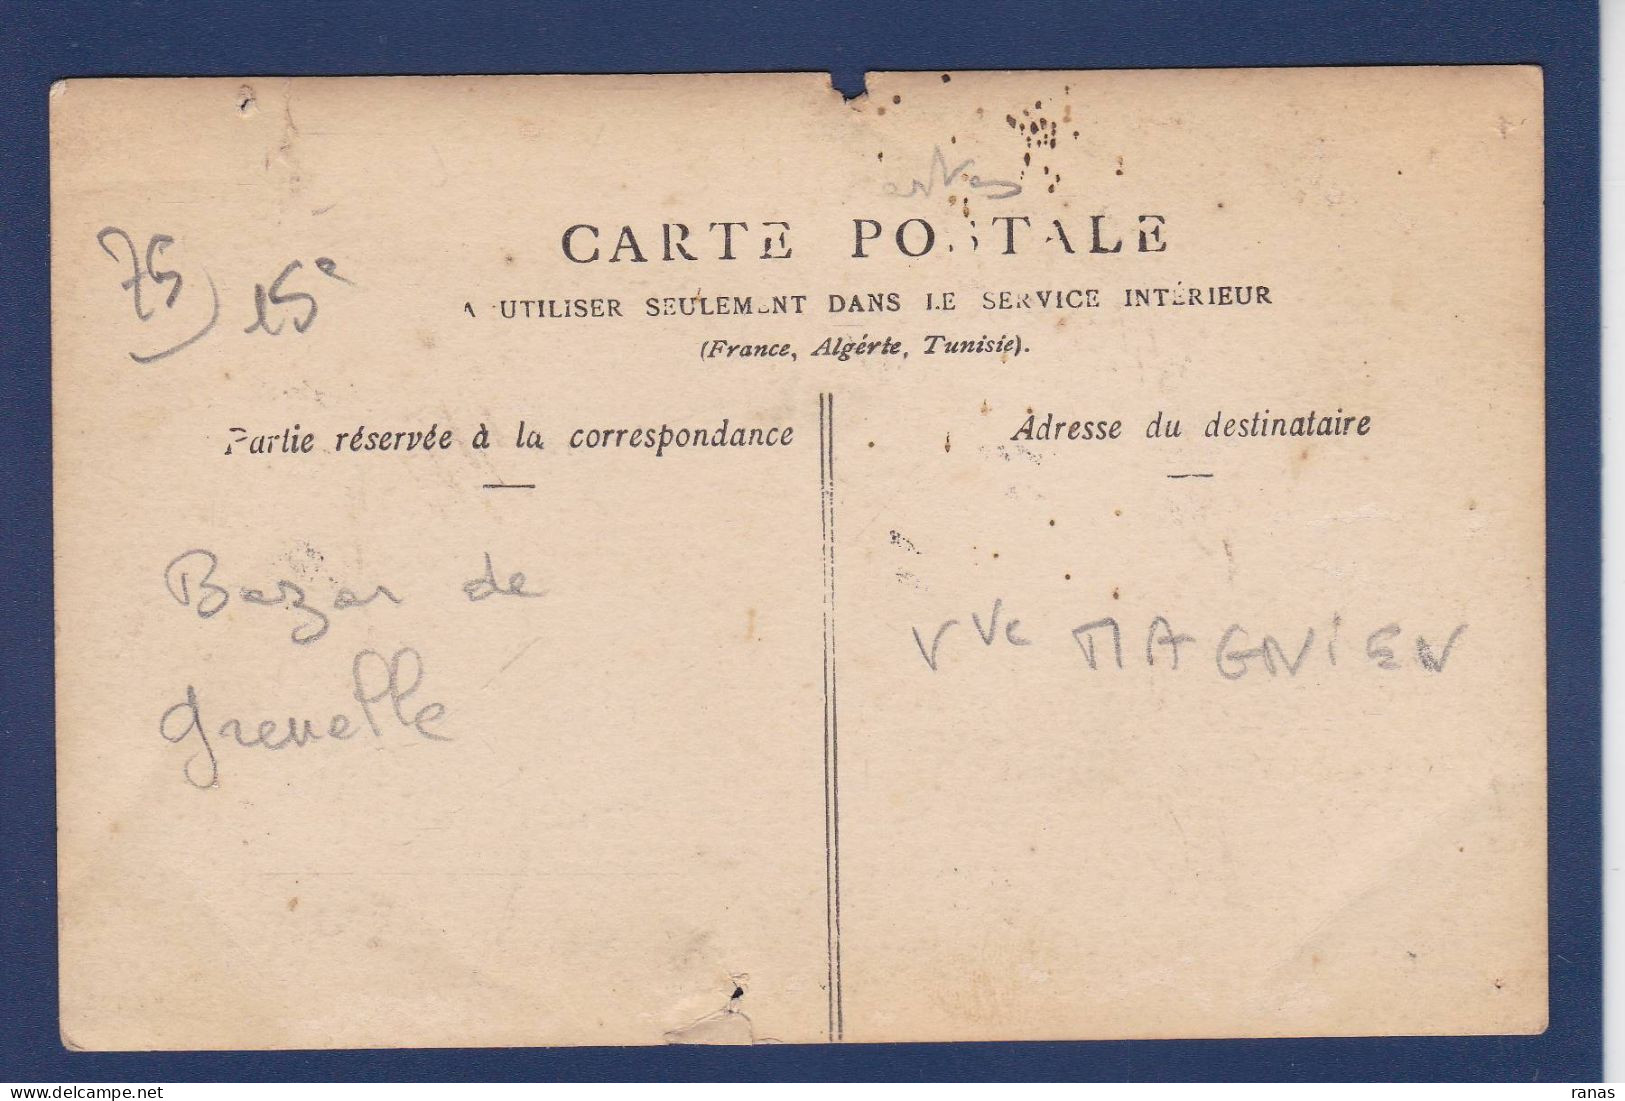 CARTE POSTALE
A UTILISER SEULEMENT DANS LE SERVICE INTÉRIEUR
(France, Algérie, Tunisie).
75 15e
Partie réservée à la correspondance
Adresse du destinataire
Bazar de
Grenelle
Vve MAGNIEN
ranas